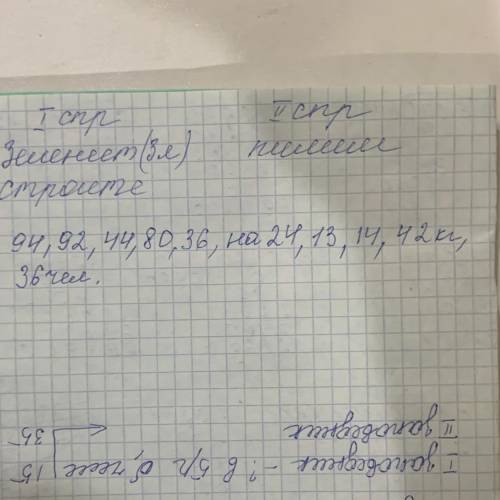 I спр
II спр
Зеленеет (3л)
пилим
строите
94, 92, 44, 80, 36, на 24, 13, 14, 42кг,
36чел.
I заповедник - ? в 5/р б, чем 15
II заповедник 35